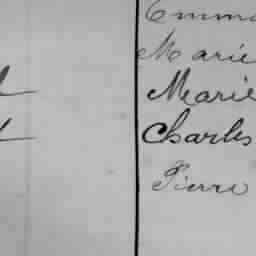 Emma
Marie
Marie
Charles
Pierre